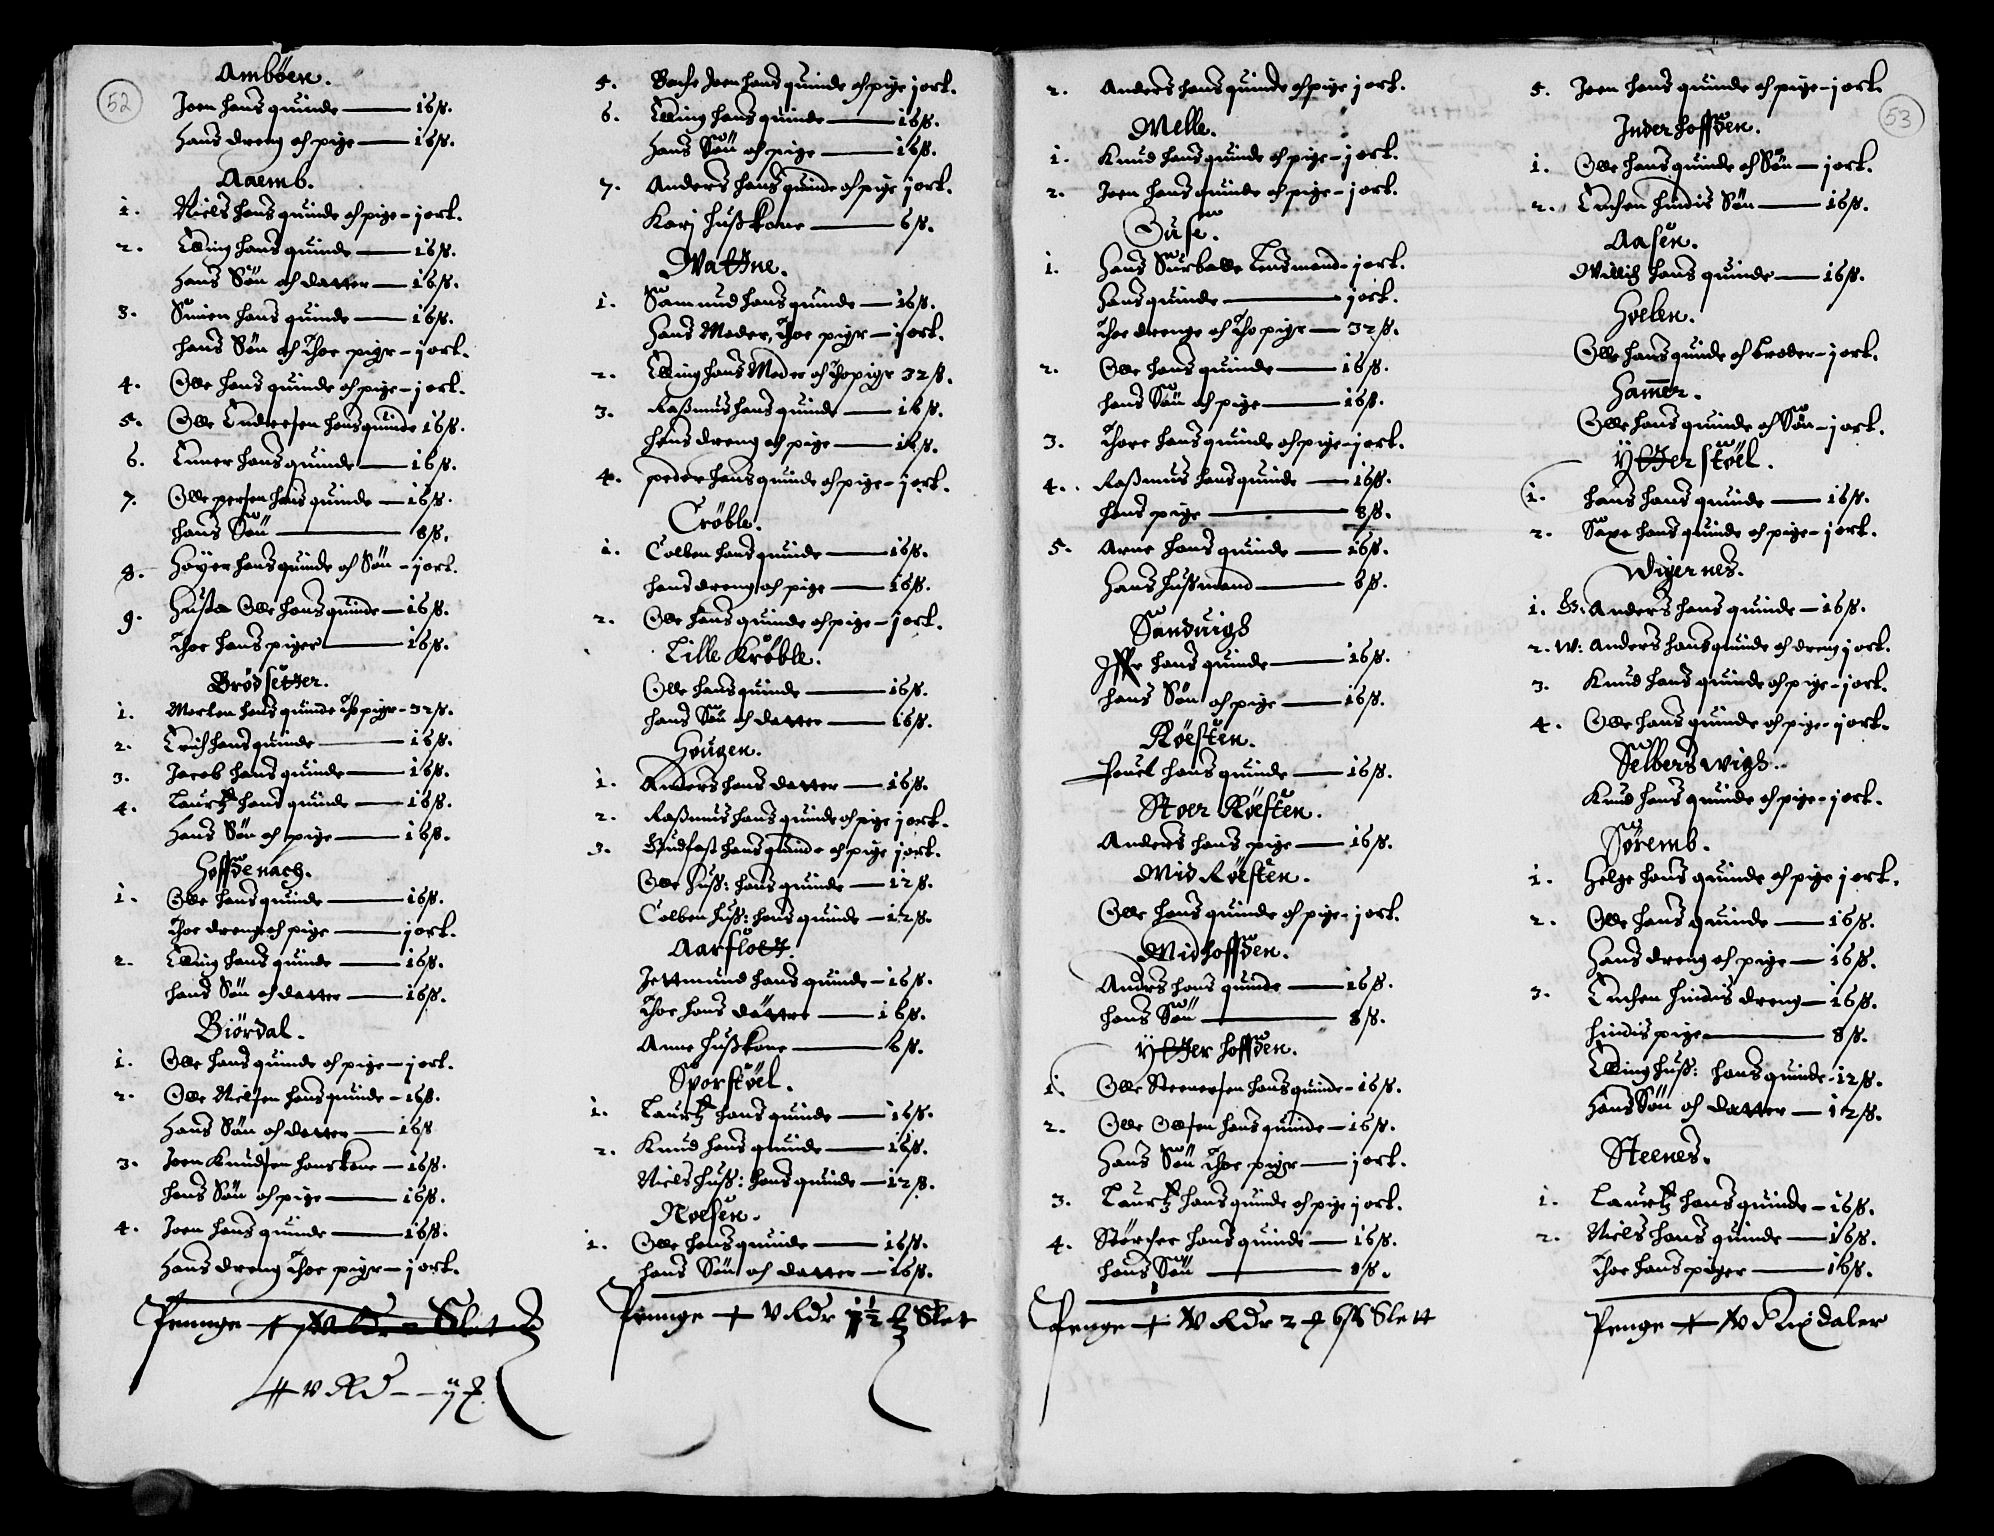 52
Ambøen.
Joen hans quinde — 16ß.
Hans dreng och pige — 16ß.
Aaemb.
1. Niels hans quinde och pige – j ort.
2. Elling hans quinde — 16ß.
Hans Søn och datter — 16ß.
3. Simen hans quinde — 16ß.
hans Søn och Thoe piger – j ort.
4. Olle hans quinde och pige – j ort.
5. Olle Endresen hans quinde 16ß.
6. Einer hans quinde — 16ß.
7. Olle persen hans quinde — 16ß.
hans Søn — 8ß.
8. Høyer hans quinde och Søn – j ort.
9. Husta Olle hans quinde — 16ß.
Thoe hans piger — 16ß.
Brødsetter.
1. Morten hans quinde Tho piger – 32ß.
2. Erich hans quinde — 16ß.
3. Jacob hans quinde — 16ß.
4. Lauritz hans quinde — 16ß.
Hans Søn och pige — 16ß.
Hoffdenach.
1. Olle hans quinde — 16ß.
Thoe dreng och pige — j ort.
2. Elling hans quinde — 16ß.
hans Søn och datter — 16ß.
Biørdal.
1. Olle hans quinde och pige – j ort.
2. Olle Nielsen hans quinde – 16ß.
Hans Søn och datter — 16ß
3. Joen Knudsen hans kone — 16ß.
hans Søn och pige — 16ß.
4. Joen hans quinde — 16ß.
Hans dreng Thoe piger – j ort.
Penge
5. Joen hans quinde och pige j ort.
6. Elling hans quinde — 16ß.
Hans Søn och pige — 16ß.
7. Anders hans quinde och pige j ort.
Karj husskone — 6ß.
Wattne.
1. Samund hans quinde — 16ß.
Hans Moder, Thoe piger – j ort.
2. Elling hans Moder och Tho piger 32ß.
3. Rasmus hans quinde — 16ß.
hans dreng och pige — 16ß.
4. peder hans quinde och pige – j ort.
Crøble.
1. Colben hans quinde — 16ß.
hans dreng och pige — 16ß.
2. Olle hans quinde och pige – j ort.
Lille Krøble.
Olle hans quinde — 16ß.
hans Søn och datter — 16ß.
Hougen.
1. Anders hans datter — 16ß.
2. Rasmus hans quinde och pige j ort.
3. Gudfast hans quinde och pige j ort.
Olle huss: hans quinde — 12ß.
Colben huss: hans quinde – 12ß.
Aarfloet.
Jettmund hans quinde – 16ß.
Thoe hans døttre — 16ß.
Anne husskone — 6ß.
Sporstøel.
1. Lauritz hans quinde — 16ß.
2. Knud hans quinde — 16ß.
Niels huss: hans quinde — 12ß.
Moesen.
1. Olle hans quinde — 16ß.
hans Søn och datter — 16ß.
Penge
53
2. Anders hans quinde och pige j ort.
Melle.
1. Knud hans quinde och pige – j ort.
2. Joen hans quinde och pige – j ort.
Huse.
1. Hans Surballe Lensmand – j ort.
Hans quinde — j ort.
Thoe drenge och Tho piger — 32ß.
2. Olle hans quinde — 16ß.
hans Søn och pige — 16ß.
3. Thore hans quinde och pige – j ort.
4. Rasmus hans quinde — 16ß.
hans pige — 8ß.
5. Arne hans quinde — 16ß.
Hans hussmand — 6ß.
Sanduigh
Iffue hans quinde — 16ß.
hans Søn och pige — 16ß.
Røesten.
Pouel hans quinde — 16ß.
Stoer Røesten.
Anders hans pige — 16ß.
Mid Røesten.
Olle hans quinde och pige – j ort.
Midhoffden.
Anders hans quinde — 16ß.
hans Søn — 8ß.
Ytter hoffden.
1. Olle Steenersen hans quinde – 16ß.
2. Olle Ollsen hans quinde — 16ß.
Hans Søn Thoe piger — j ort.
3. Lauritz hans quinde och pige j ort.
4. Størcher hans quinde — 16ß.
hans Søn — 8ß.
Penge
5. Joen hans quinde och pige – j ort.
Inder hoffden.
1. Olle hans quinde och Søn – j ort.
2. Enchen hindis Søn — 16ß.
Aasen.
Willich hans quinde — 16ß.
Hoelen.
Olle hans quinde och broder – j ort.
Hamer.
Olle hans quinde och Søn – j ort.
Ytterstøel.
1. hans hans quinde — 16ß.
2. Saxe hans quinde och pige – j ort.
Wigernes.
1. G: Anders hans quinde – 16ß.
2. W: Anders hans quinde och dreng j ort.
3. Knud hans quinde och pige – j ort.
4. Olle hans quinde och pige – j ort.
Selberswigh.
Knud hans quinde och pige – j ort.
Søremb.
1. Helge hans quinde och pige j ort.
2. Olle hans quinde — 16ß.
Hans dreng och pige — 16ß.
3. Enchen hindis dreng — 16ß.
hindis pige — 8ß.
Elling huss: hans quinde – 12ß.
Hans Søn och datter — 12ß.
Steenes.
1. Lauritz hans quinde — 16ß.
2. Niels hans quinde — 16ß.
Thoe hans piger — 16ß.
Penge